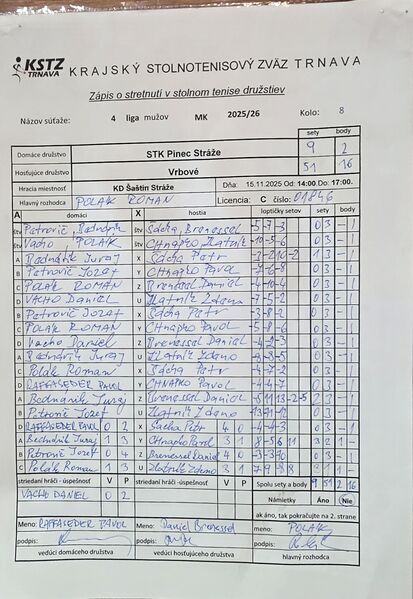 KSTZ TRNAVA KRAJSKÝ STOLNOTENISOVÝ ZVÄZ TRNAVA
Zápis o stretnutí v stolnom tenise družstiev
Názov súťaže: 4 liga mužov MK 2025/26 Kolo: 8
sety body
Domáce družstvo STK Pinec Stráže 9 2
Hosťujúce družstvo Vrbové 51 16
Hracia miestnosť KD Šaštín Stráže Dňa: 15.11.2025 Od: 14:00 Do: 17:00.
Hlavný rozhodca POLAK ROMAN Licencia: C číslo: 01846
A domáci X hostia loptičky setov sety body
štv Petrovič, Bednárik štv Sácha, Brenessel -5 -7 -3 0 3 - 1
štv Vacho, POLAK štv CHNAPKO Zlatník -10 -5 -6 0 3 - 1
A Bednárik Juraj X Sácha Petr 1 3 - 1
B Petrovič Jozef Y CHNAPKO Pavol -7 -6 -8 0 3 - 1
C POLAK ROMAN Z Brenessel Daniel -4 -10 -4 0 3 - 1
D VACHO DANIEL U Zlatník Zdeno -7 -5 -2 0 3 - 1
B Petrovič Jozef X Sácha Petr -3 -8 -2 0 3 - 1
C POLAK ROMAN Y CHNAPKO PAVOL -5 -8 -6 0 3 - 1
D Vacho Daniel Z Brenessel Daniel -4 -2 -3 0 3 - 1
A Bednárik Juraj U Zlatník Zdeno 0 3 - 1
C Polák Roman X Sácha Petr -4 -7 -2 0 3 - 1
D RAFFASEDER PAVOL Y CHNAPKO Pavol -4 -4 -7 0 3 - 1
A Bednárik Juraj Z Brenessel Daniel 2 3 - 1
B Petrovič Jozef U Zlatník Zdeno 0 3 - 1
D RAFFASEDER PAVOL 0 2 X Sácha Petr 4 0 -4 -4 -3 0 3 - 1
A Bednárik Juraj 1 3 Y CHNAPKO Pavol 3 1 3 2 1 -
B Petrovič Jozef 0 4 Z Brenessel Daniel 4 0 0 3 - 1
C Polak Roman 1 3 U Zlatník Zdeno 3 1 3 1 1 -
striedaní hráči - úspešnosť V P striedaní hráči - úspešnosť V P Spolu sety a body 9 51 2 16
VACHO DANIEL 0 2 Námietky Áno Nie
ak áno, tak pokračujte na 2. strane
Meno: RAFFASEDER PAVOL Meno: Daniel Brenessel meno: POLAK
podpis: podpis: podpis:
vedúci domáceho družstva vedúci hosťujúceho družstva hlavný rozhodca